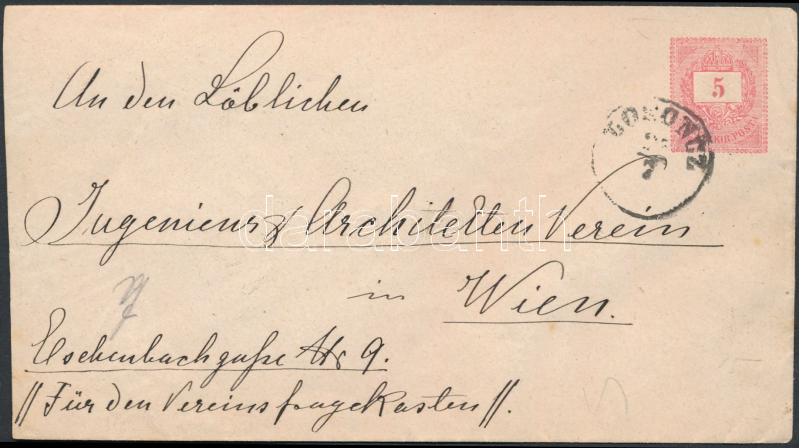 An den Löblichen
5
KIR. POSTA
Ingenieur & Architekten Verein
in Wien.
Eschenbachgaße Nr 9.
//Für den Vereinsfragekasten//.
darabanth